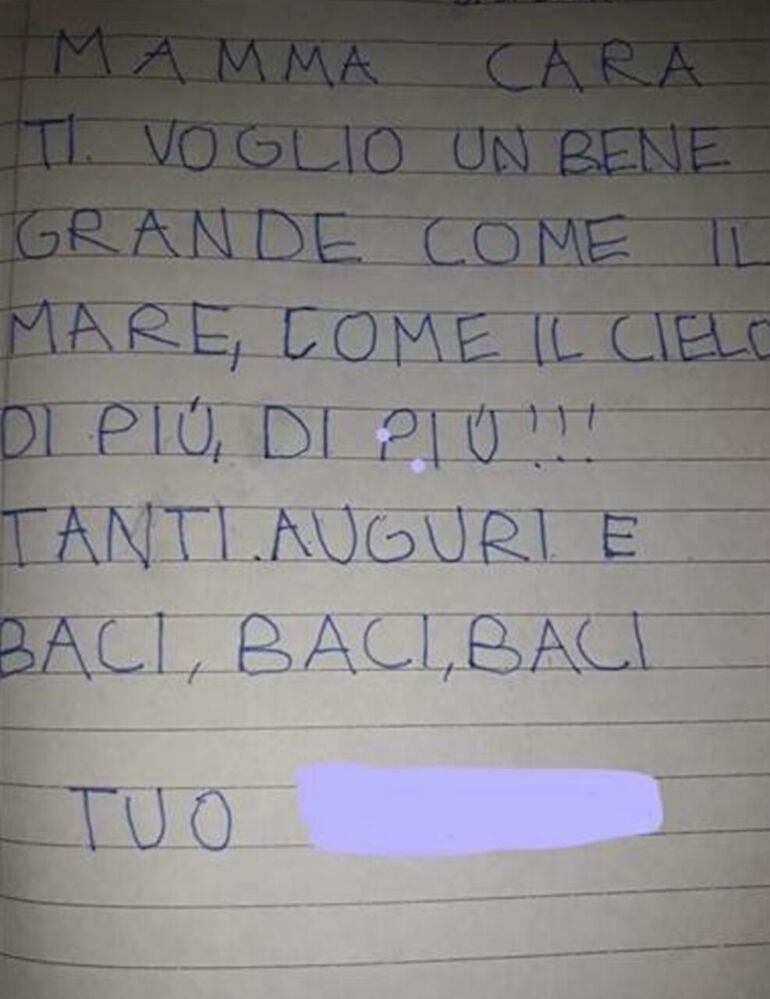 MAMMA CARA
TI. VOGLIO UN BENE
GRANDE COME IL
MARE, COME IL CIELO
DI PIÚ, DI PIÚ!!!
TANTI.AUGURI E
BACI, BACI, BACI
TUO